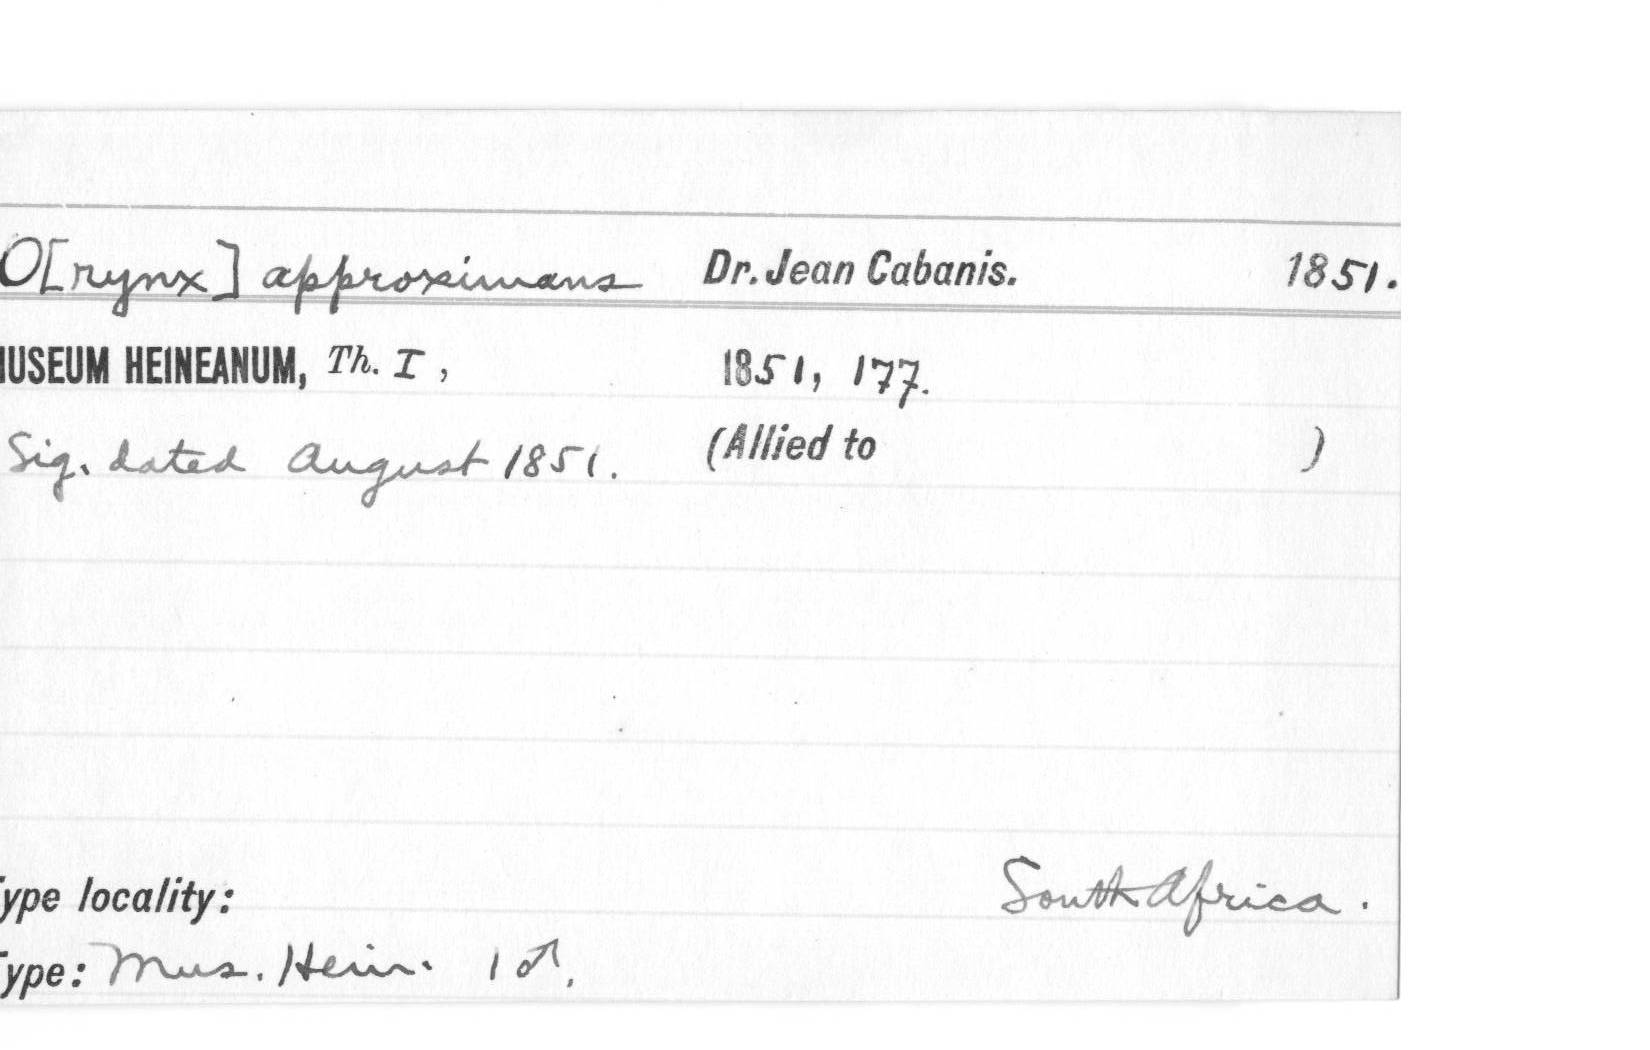 O[rynx] approximans Dr. Jean Cabanis. 1851.
IUSEUM HEINEANUM, Th. I, 1851, 177.
Sig. dated August 1851. (Allied to )
ype locality: South Africa.
ype: Mus. Hein. 1 ♂.